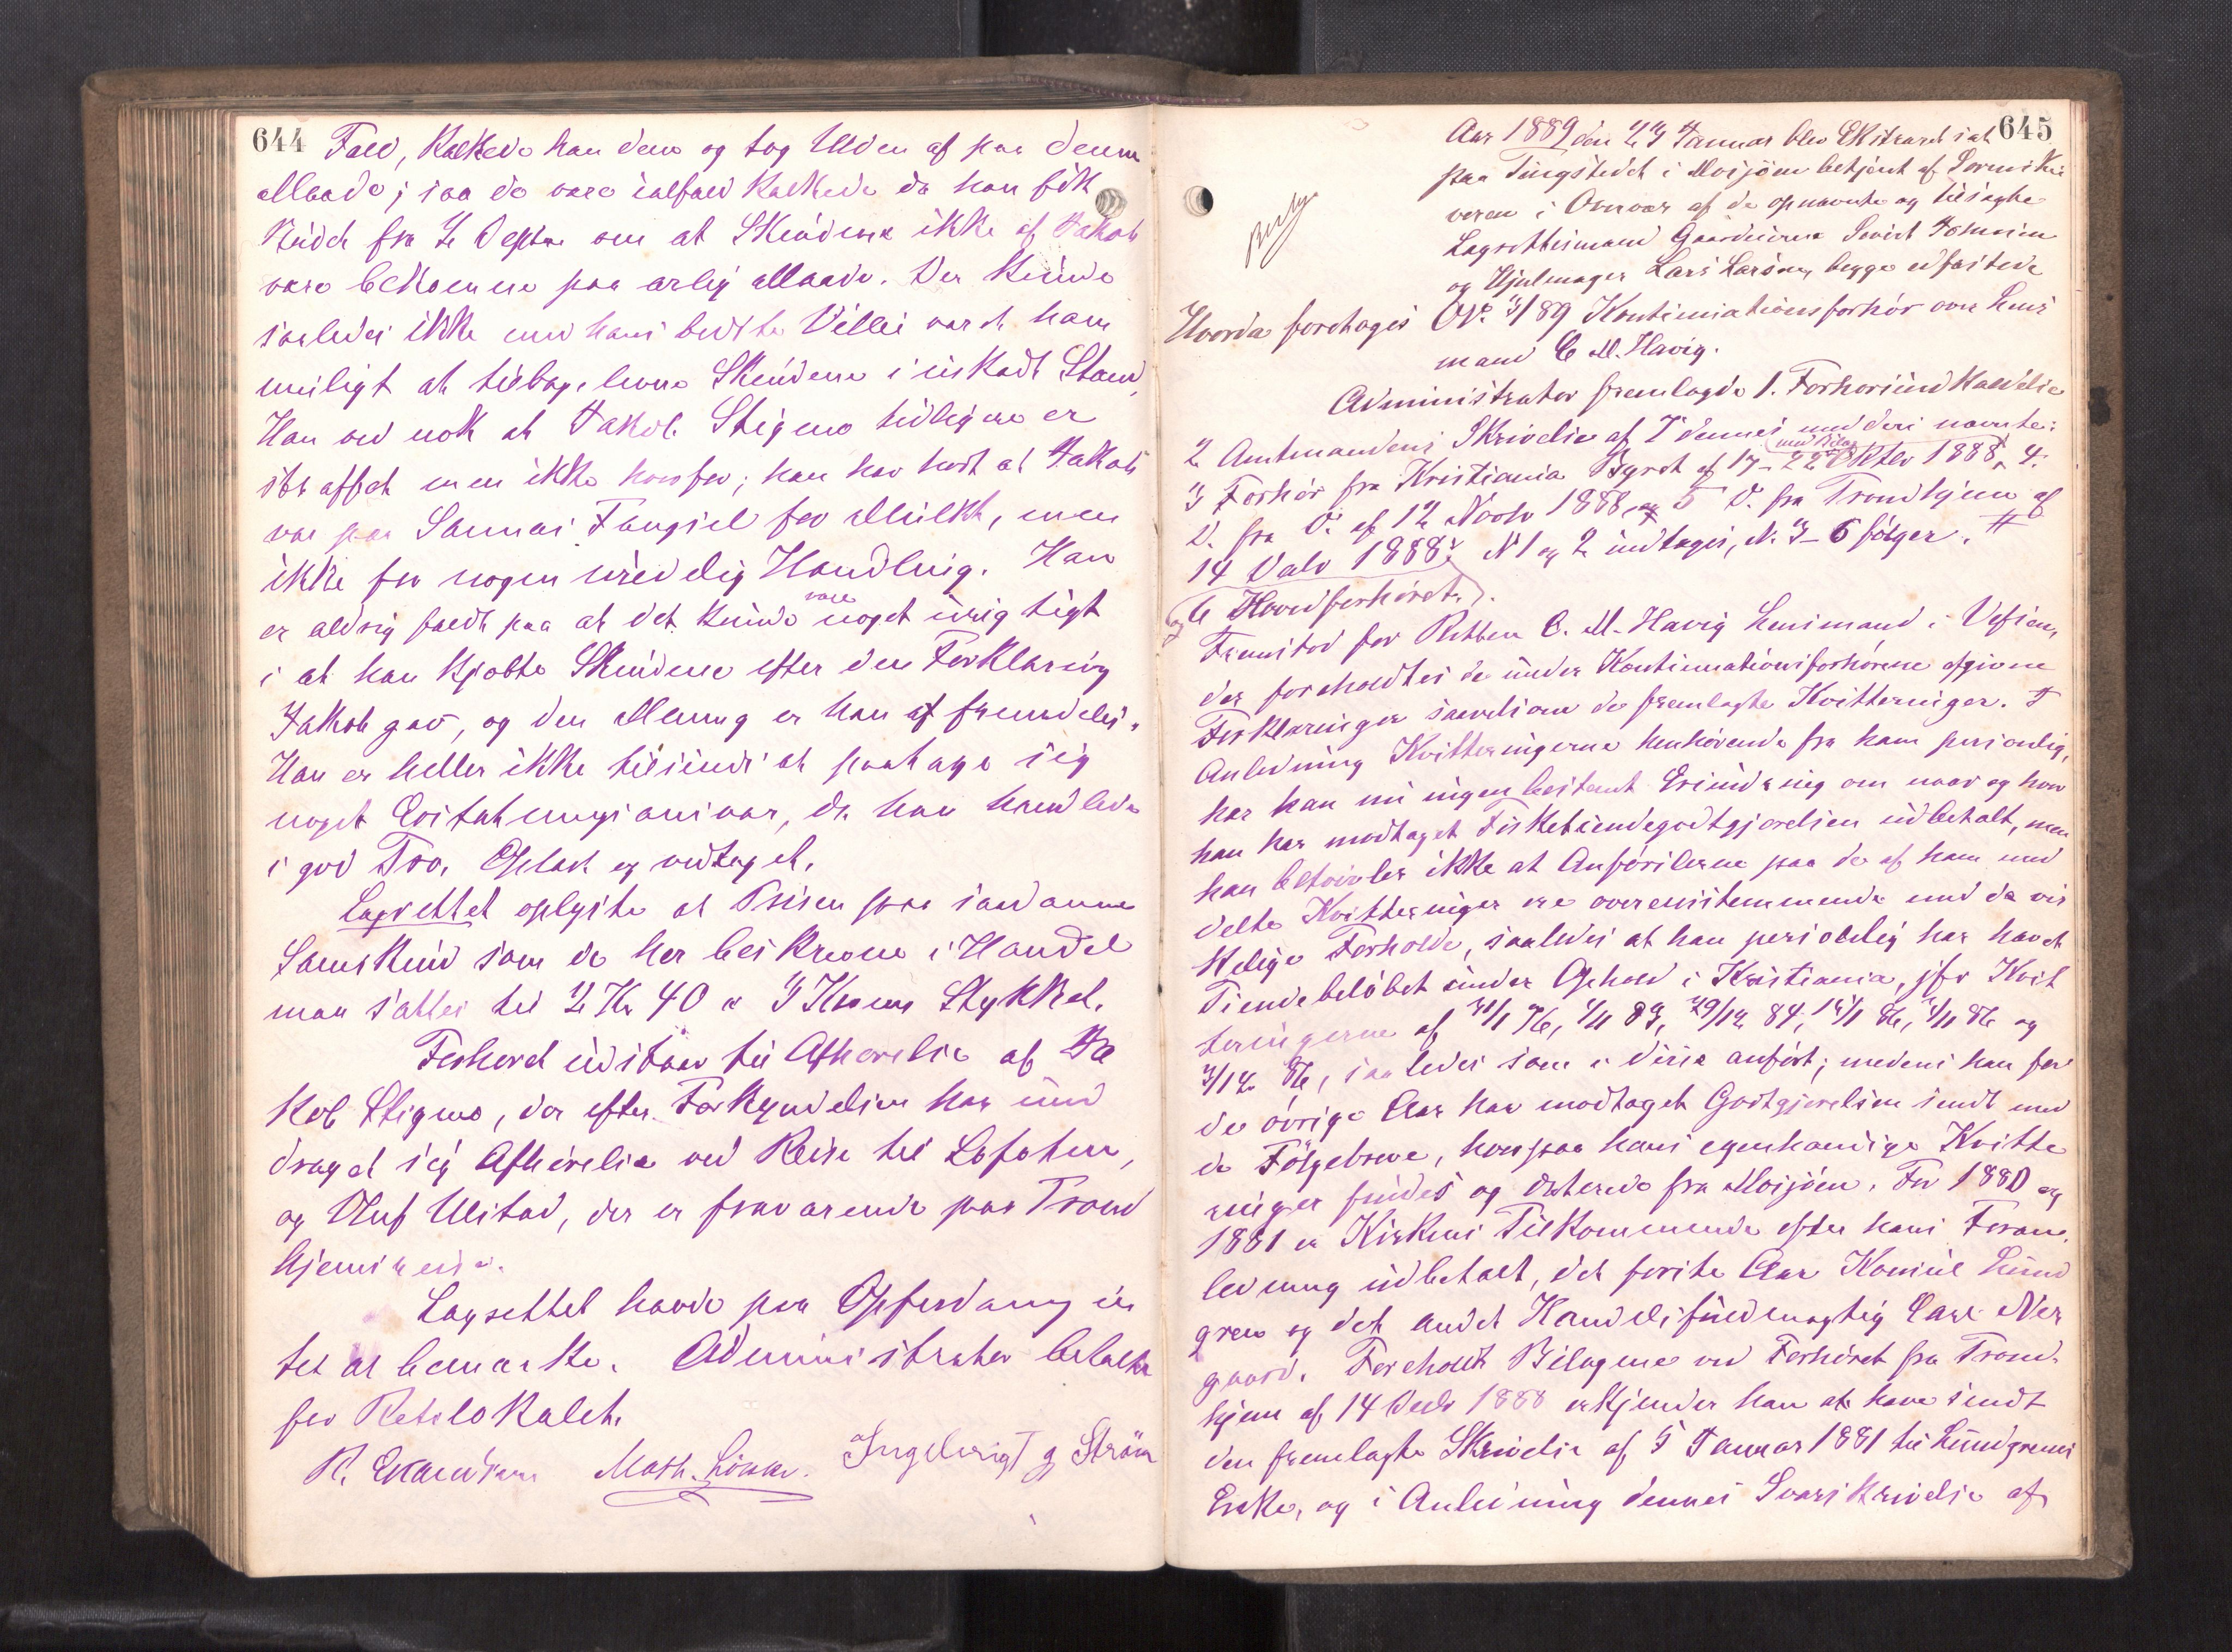 644
Fald, kalkede han dem og tog Ulden af paa denne
Maade; saa de vare ialfald kalkede da han fik
Budet fra L. Depter om at Skindene ikke af Jakob
vare bekomne paa ærlig Maade. Der kunde
saaledes ikke med hans bedste Villie vært ham
muligt at tilbagelevere Skindene i uskadt Stand.
Han ved nok at Jakob Stigmo tidligere er
straffet men ikke hvorfor; han har hørt at Jakob
var paa Sannas Fangsel for Mulkt, men
ikke for nogen uredelig Handling. Han
er aldrig faldt paa at det kunde være noget urigtigt
i at han kjøbte Skindene efter den Forklaring
Jakob gav, og den Mening er han af fremdeles.
Han er heller ikke tilsinds at paatage sig
noget Erstatningsansvar, da han handlede
i god Tro. Oplæst og vedtaget.
Lagrettet oplyste at Prisen paa saadanne
Saueskind som de her beskrevne i Handel
man sættes til 2 Kr 40 a 3 Kroner Stykket.
Forhøret udstaar til Afhørelse af Ja
kob Stigmo, der efter Forkyndelsen har und
draget sig Afhørelse ved Reise til Lofoten,
og Oluf Ulstad, der er fraværende paa Trond
hjemsreise.
Lagrettet havde paa Opfordring in
tet at bemærke. Administrator betalte
for Retslokalet.
Math. Løkke. Ingebrigt J Strøm
645
Aar 1889 den 23 Januar blev Ekstraret sat
paa Tingstedet i Mosjøen betjent af Sorenskri
veren i Overvær af de opnævnte og tilsagte
Lagrettesmænd Gaardeierne Sivert Johnsen
og Hjulmager Lars Larsen, begge edfæstede
Hvorda foretoges No 3/89 Kontinuationsforhør over Lens
mand C M. Havig.
Administrator fremlagde 1. Forhørsind kaldelse
2 Amtmandens Skrivelse af 7 dennes med deri nævnte:
3 Forhør fra Kristiania Byret af 17-22 Oktbr 1888 med Bilag, 4.
D. fra D. af 12 Novbr 1888, og 5 D. fra Trondhjem af
14 Decbr 1888. N 1 og 2 indtages, N. 3-6 følger. #
og 6 Hovedforhøret.
Fremstod for Retten C. M. Havig Lensmand i Vefsen,
der foreholdtes de under Kontinuationsforhørene afgivne
Forklaringer samt som de fremlagte Kvitteringer. I
Anledning Kvitteringerne henhørende fra ham personlig,
har han nu ingen bestemt Erindring om naar og hvor
han har modtaget Fisketiendegodtgjørelsen udbetalt, men
han betvivler ikke at Anførslerne paa de af ham med
delte Kvitteringer ere overensstemmende med de vir
kelige Forholde, saaledes at han personlig har hævet
Tiendebeløbet under Ophold i Kristiania, jfr Kvit
teringerne af 31/1 76, 4/11 83, 29/12 84, 12/1 86, 3/11 86 og
3/12 86, saaledes som i disse anført; medens han for
de øvrige Aar har modtaget Godtgjørelsen sendt med
de Følgebreve, hvorpaa hans egenhændige Kvitte
ringer findes og daterede fra Mosjøen. For 1880 og
1881 er Kirkens Tilkommende efter hans Foran
ledning udbetalt, det første Aar Konsul Lund
gren og det andet Handelsfuldmægtig Carl Ner
gaard. Foreholdt Bilagene ved Forhøret fra Trond
hjem af 14 Decbr 1888 erkjender han at have sendt
den fremlagte Skrivelse af 5 Januar 1881 til Lundgrens
Enke, og i Anledning dennes Svarskrivelse af